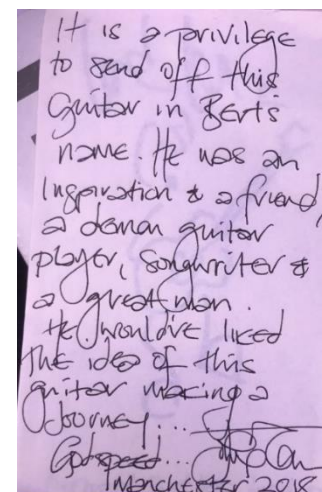 It is a privilege
to send off this
Guitar in Bert's
name. He was an
Inspiration & a friend,
a demon guitar
player, songwriter &
a great man.
He would've liked
the idea of this
guitar making a
Journey...
Godspeed...
Manchester 2018